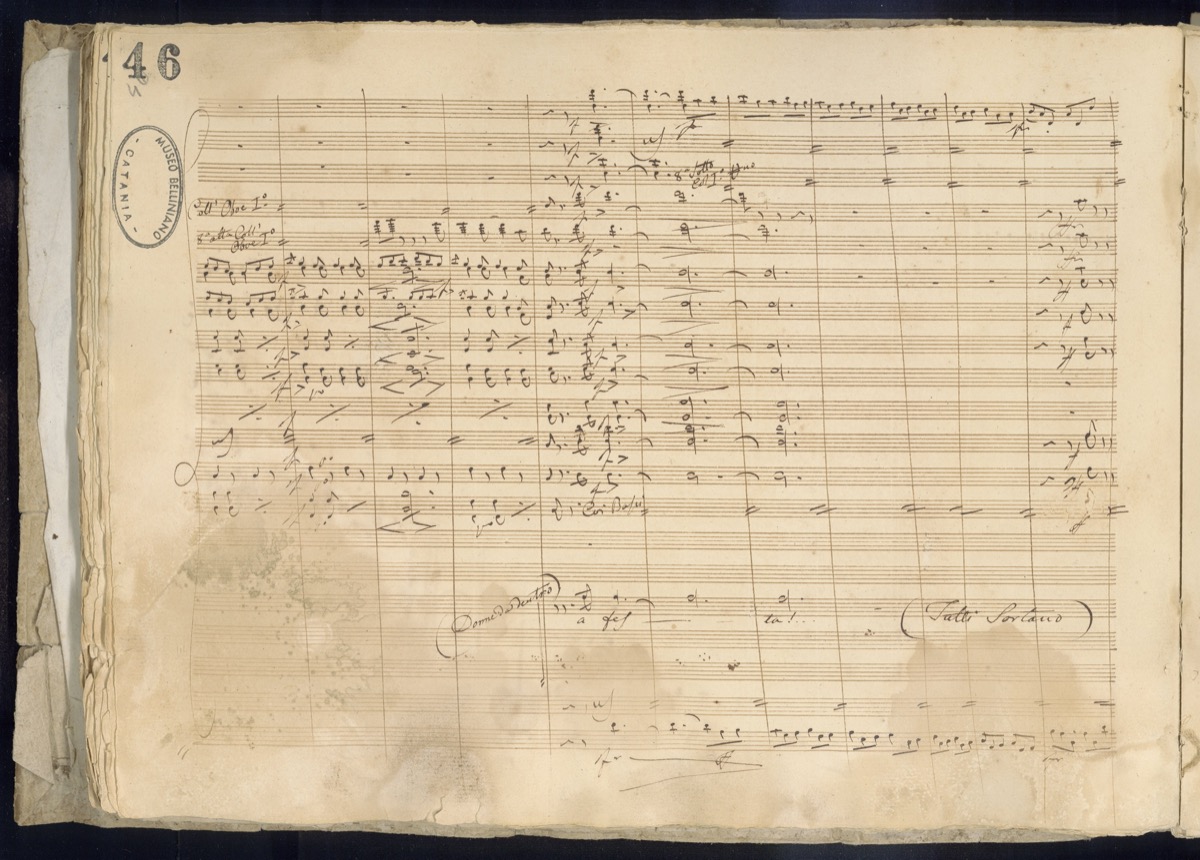 46
MUSEO BELLINIANO
- CATANIA -
Coll' Oboe Iº
8ª alta Coll'
Oboe Iº
8ª Sotto
Col Iº
Coi Bassi
(Donne da dentro)
a fes ta!...
(Tutti Sortano)